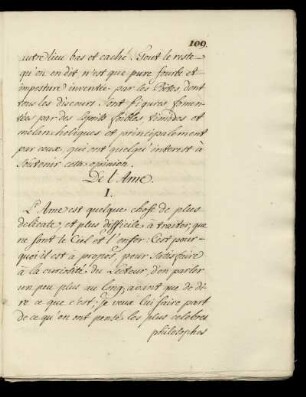 109
autre lieu bas et caché. Tout le reste
qu'on en dit n'est que pure fourbe et
imposture inventée par les Poëtes, dont
tous les discours sont figurés, fomen-
tées par des Esprits foibles timides et
mélancholiques et principalement
par ceux qui ont quelqu'interet à
soutenir cette opinion.
De l'Ame.
I.
L'Ame est quelque chose de plus
delicate, et plus difficile à traiter, que
ne sont le Ciel et l'enfer: C'est pour-
quoi il est a propos, pour satisfaire
à la curiosité du Lecteur, d'en parler
un peu plus au long; avant que de di-
re ce que c'est, Je veux lui faire part
de ce qu'on ont pensé les plus celebres
philosophes